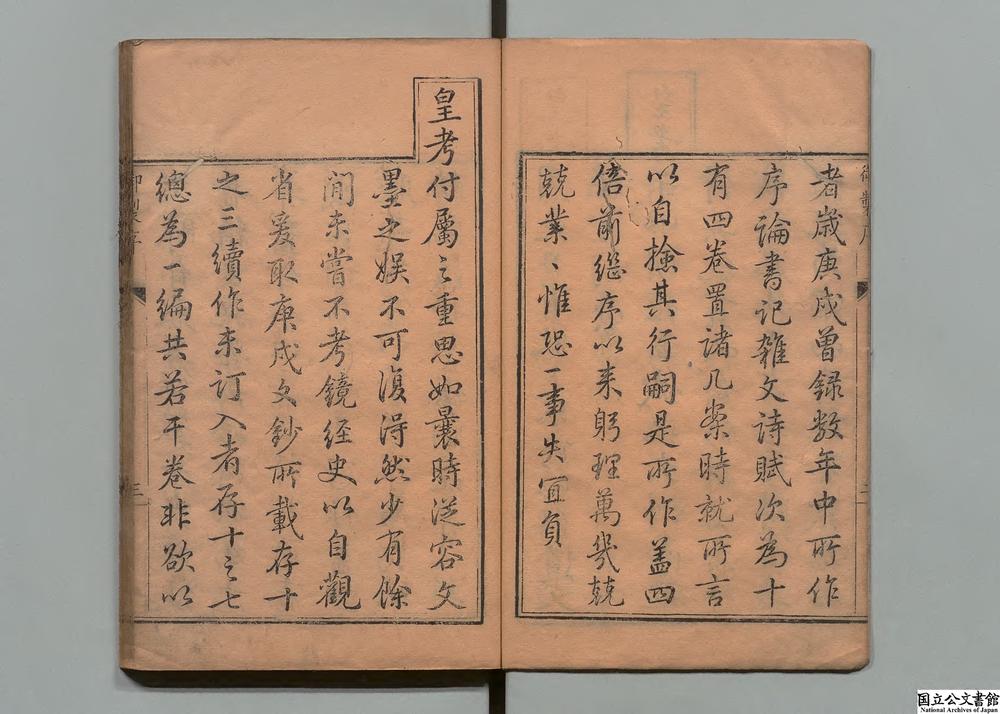 者歲庚戌曾録数年中所作
序論書記雜文詩賦次為十
有四卷置諸几案時就所言
以自撿其行嗣是所作盖四
倍前继序以来躬理萬幾兢
兢業〻惟恐一事失宜負
皇考付屬之重思如曩時從容文
墨之娱不可復得然少有餘
閒未嘗不考鏡經史以自觀
省爰取庚戌文鈔所載存十
之三續作未订入者存十之七
總為一編共若干卷非欲以
御製序
三
御製序
二
国立公文書館
National Archives of Japan